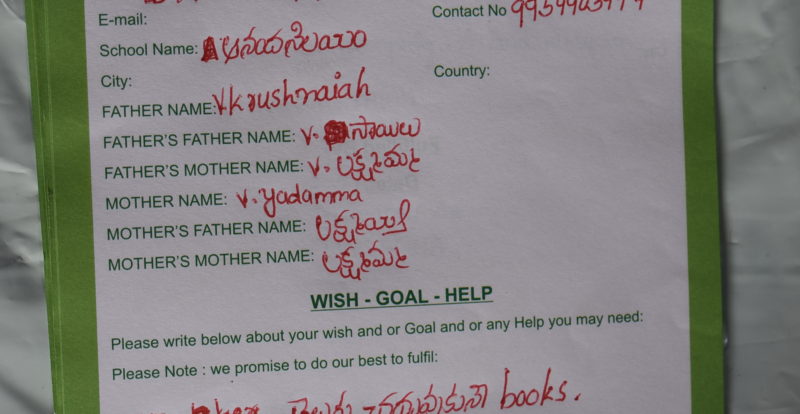 E-mail:
Contact No
School Name: ఆనందనిలయం
City:
Country:
FATHER NAME: V krushnaiah
FATHER'S FATHER NAME: V. సాయిలు
FATHER'S MOTHER NAME: V. లక్ష్మమ్మ
MOTHER NAME: V. Yadamma
MOTHER'S FATHER NAME: లక్ష్మయ్య
MOTHER'S MOTHER NAME: లక్ష్మమ్మ
WISH - GOAL - HELP
Please write below about your wish and or Goal and or any Help you may need:
Please Note : we promise to do our best to fulfil:
books.